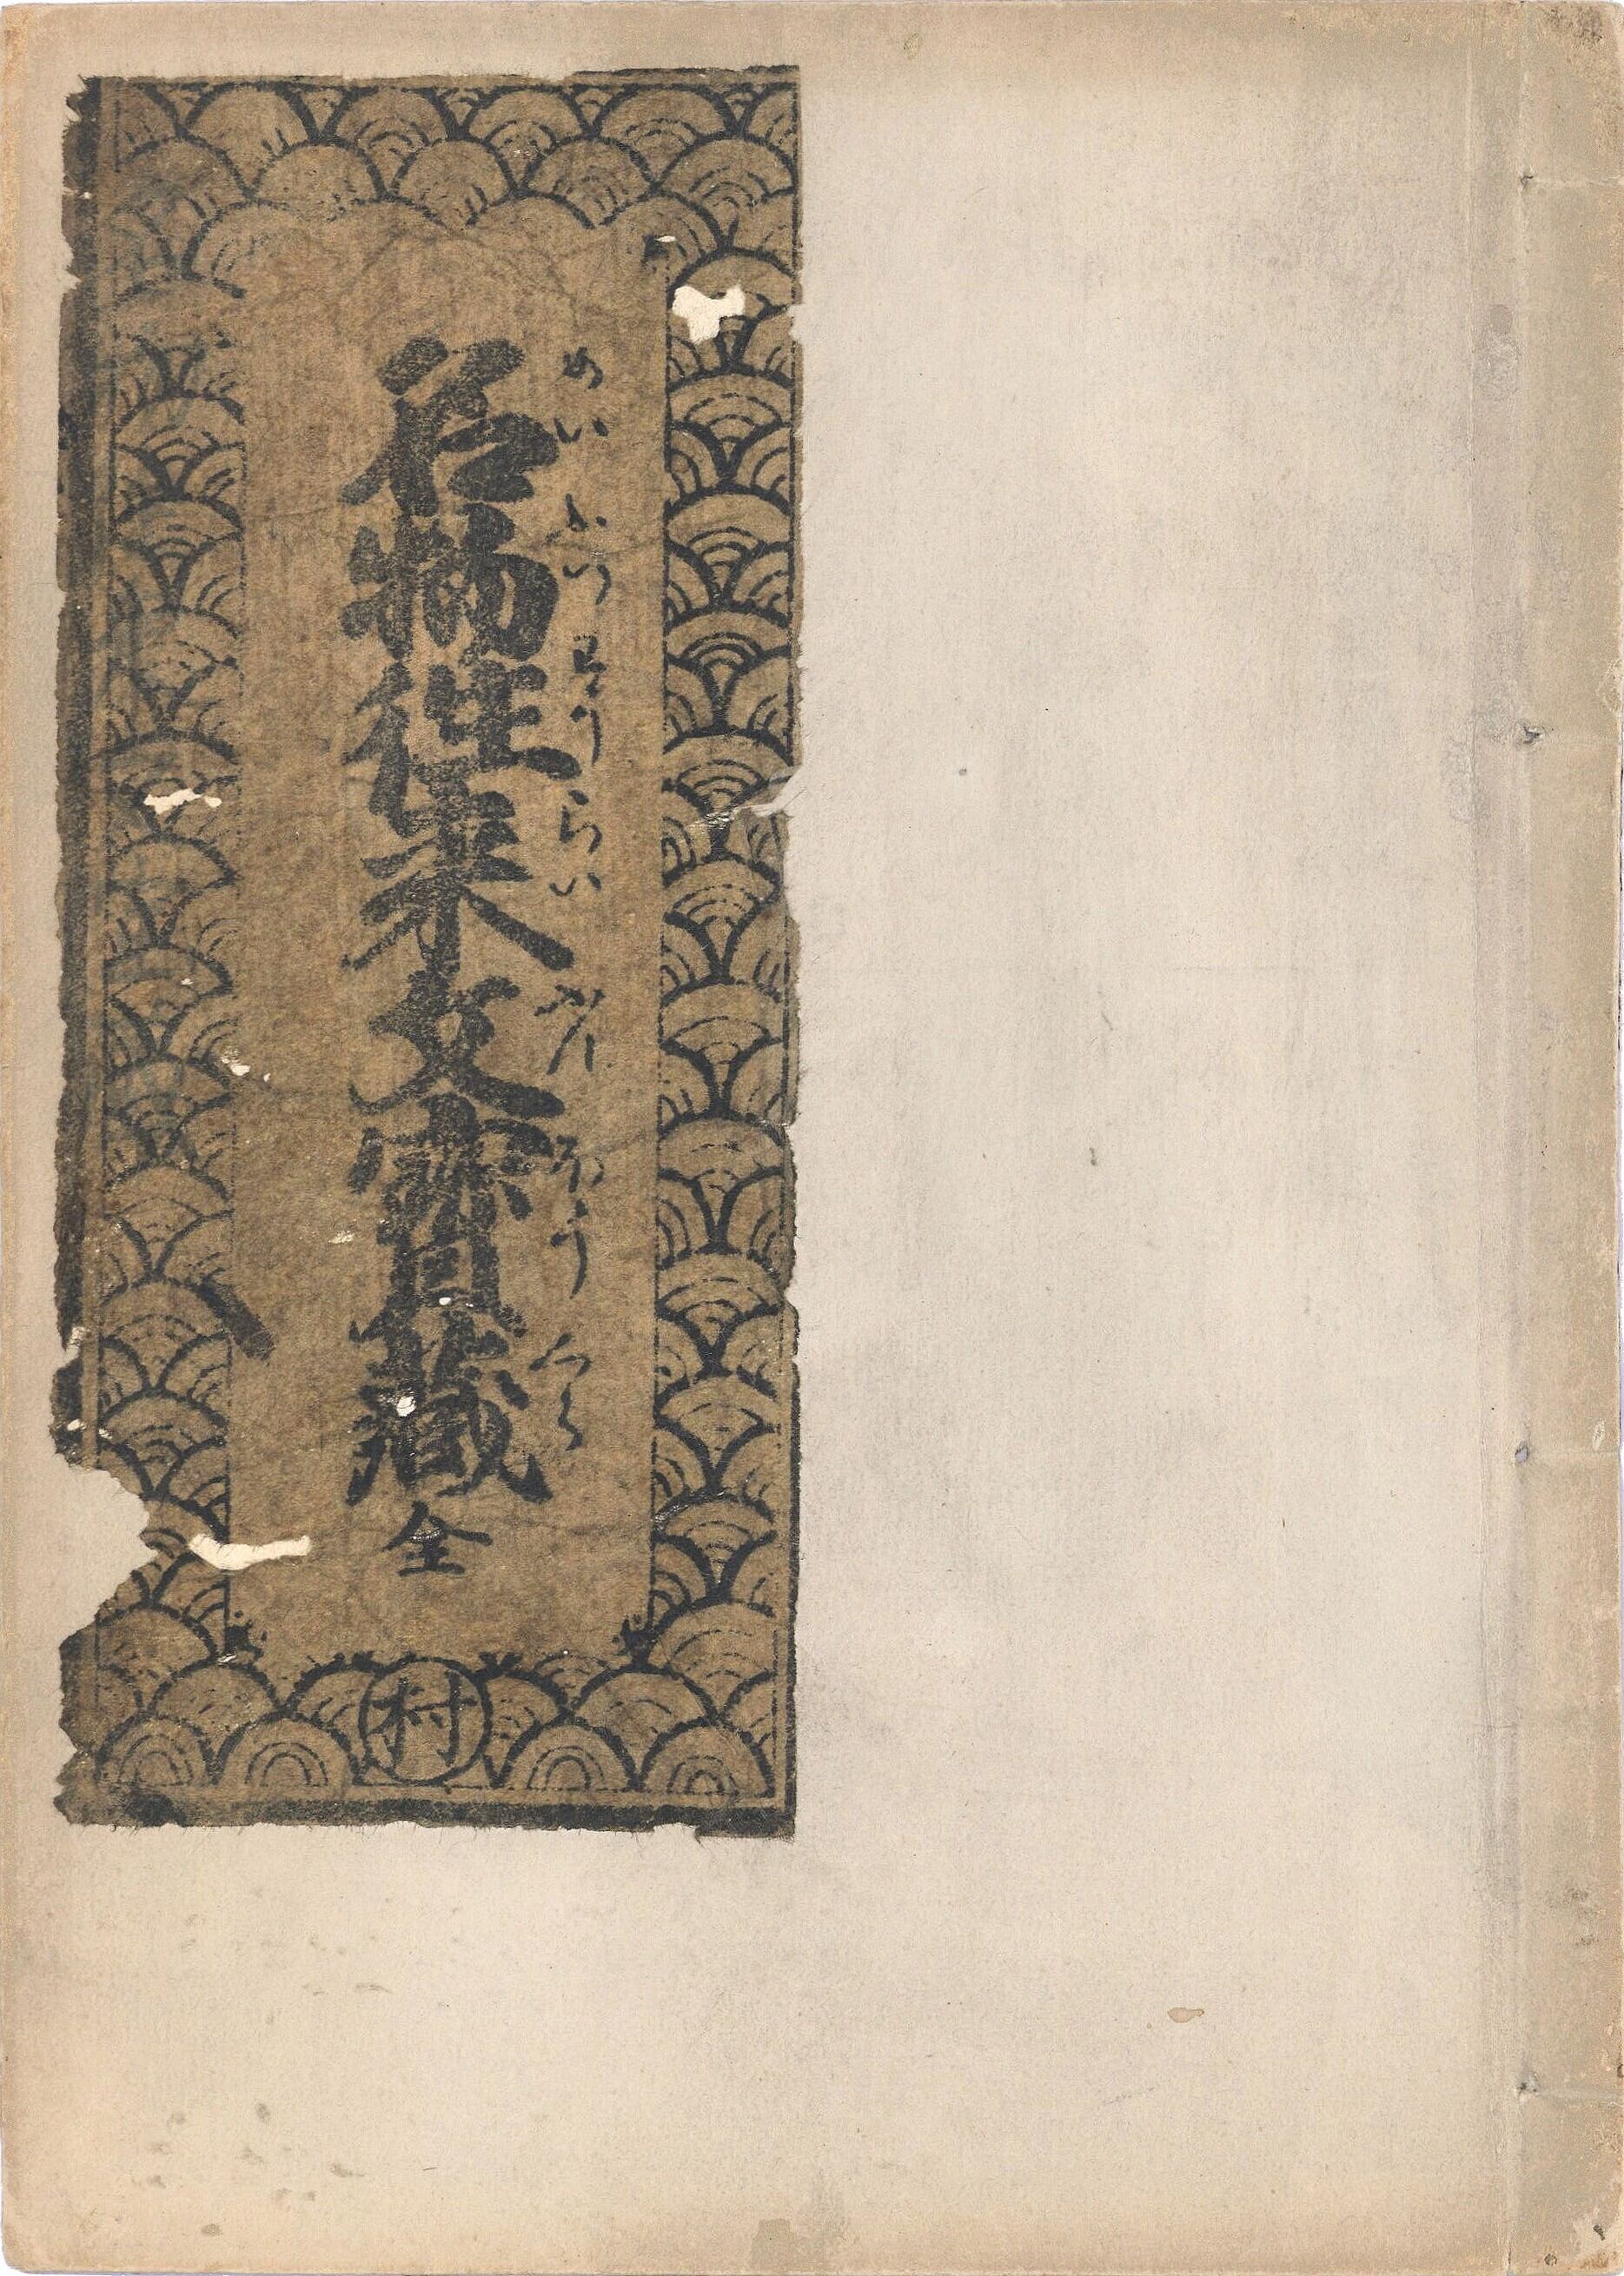 名物往来文寳蔵 全
めいぶつわうらいぶんほうくら
村